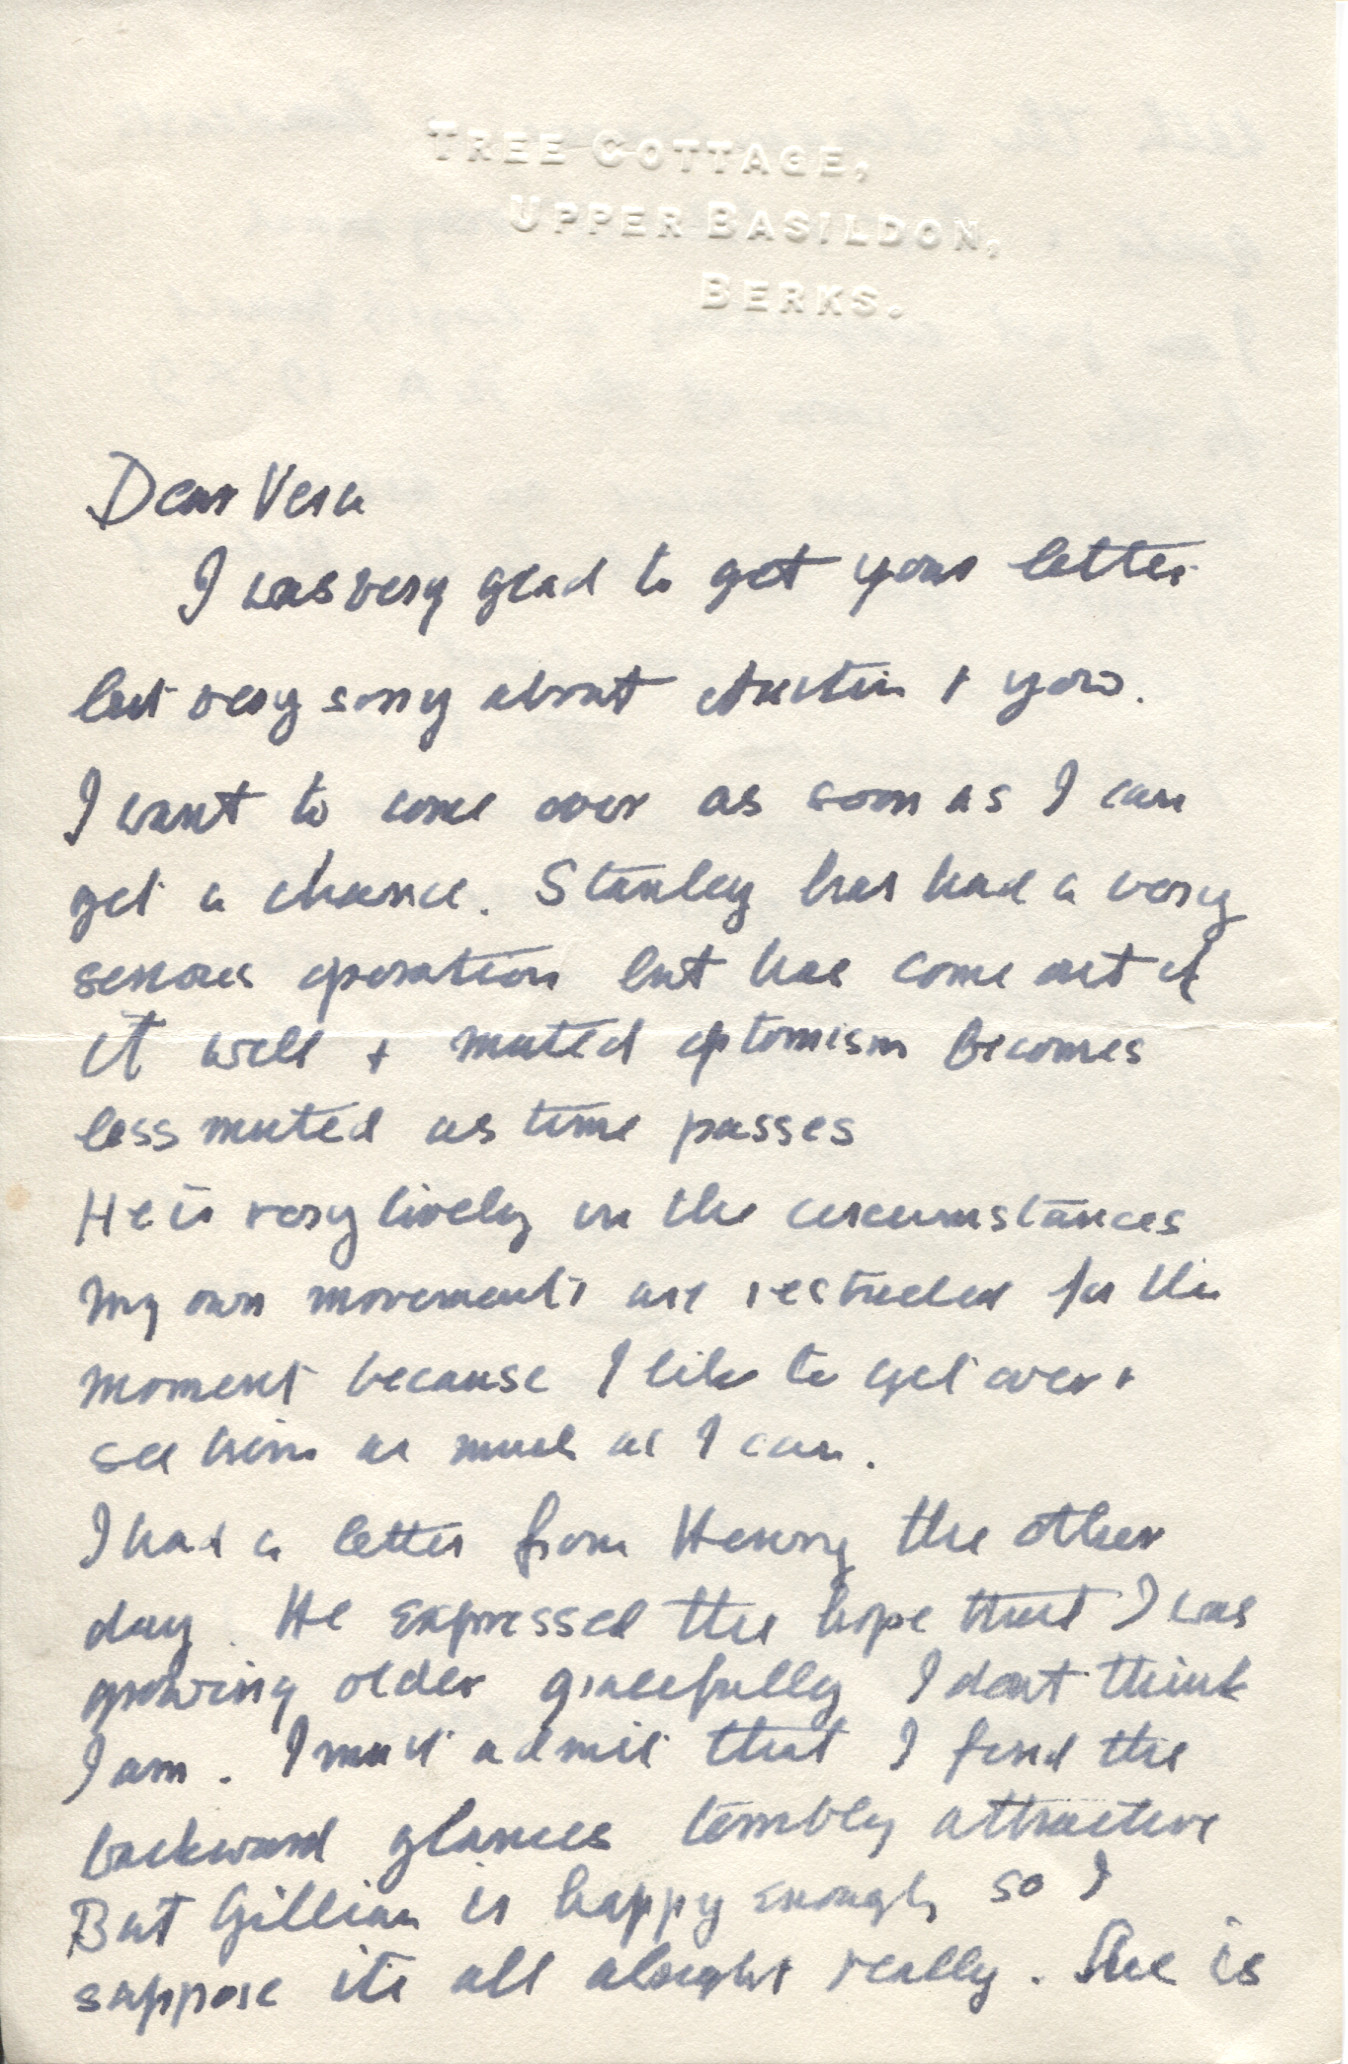 TREE COTTAGE,
UPPER BASILDON,
BERKS.
Dear Vera
I was very glad to get your letter
but very sorry about Austin + you.
I want to come over as soon as I can
get a chance. Stanley has had a very
serious operation but has come out of
it well + muted optomism becomes
less muted as time passes
He is very lively in the circumstances
My own movements are restricted for the
moment because I like to get over +
see him as much as I can.
I had a letter from Henry the other
day. He expressed the hope that I was
growing older gracefully I dont think
I am. I must admit that I find the
backward glances terribly attractive
But Gillian is happy enough so I
suppose its all alright really. She is